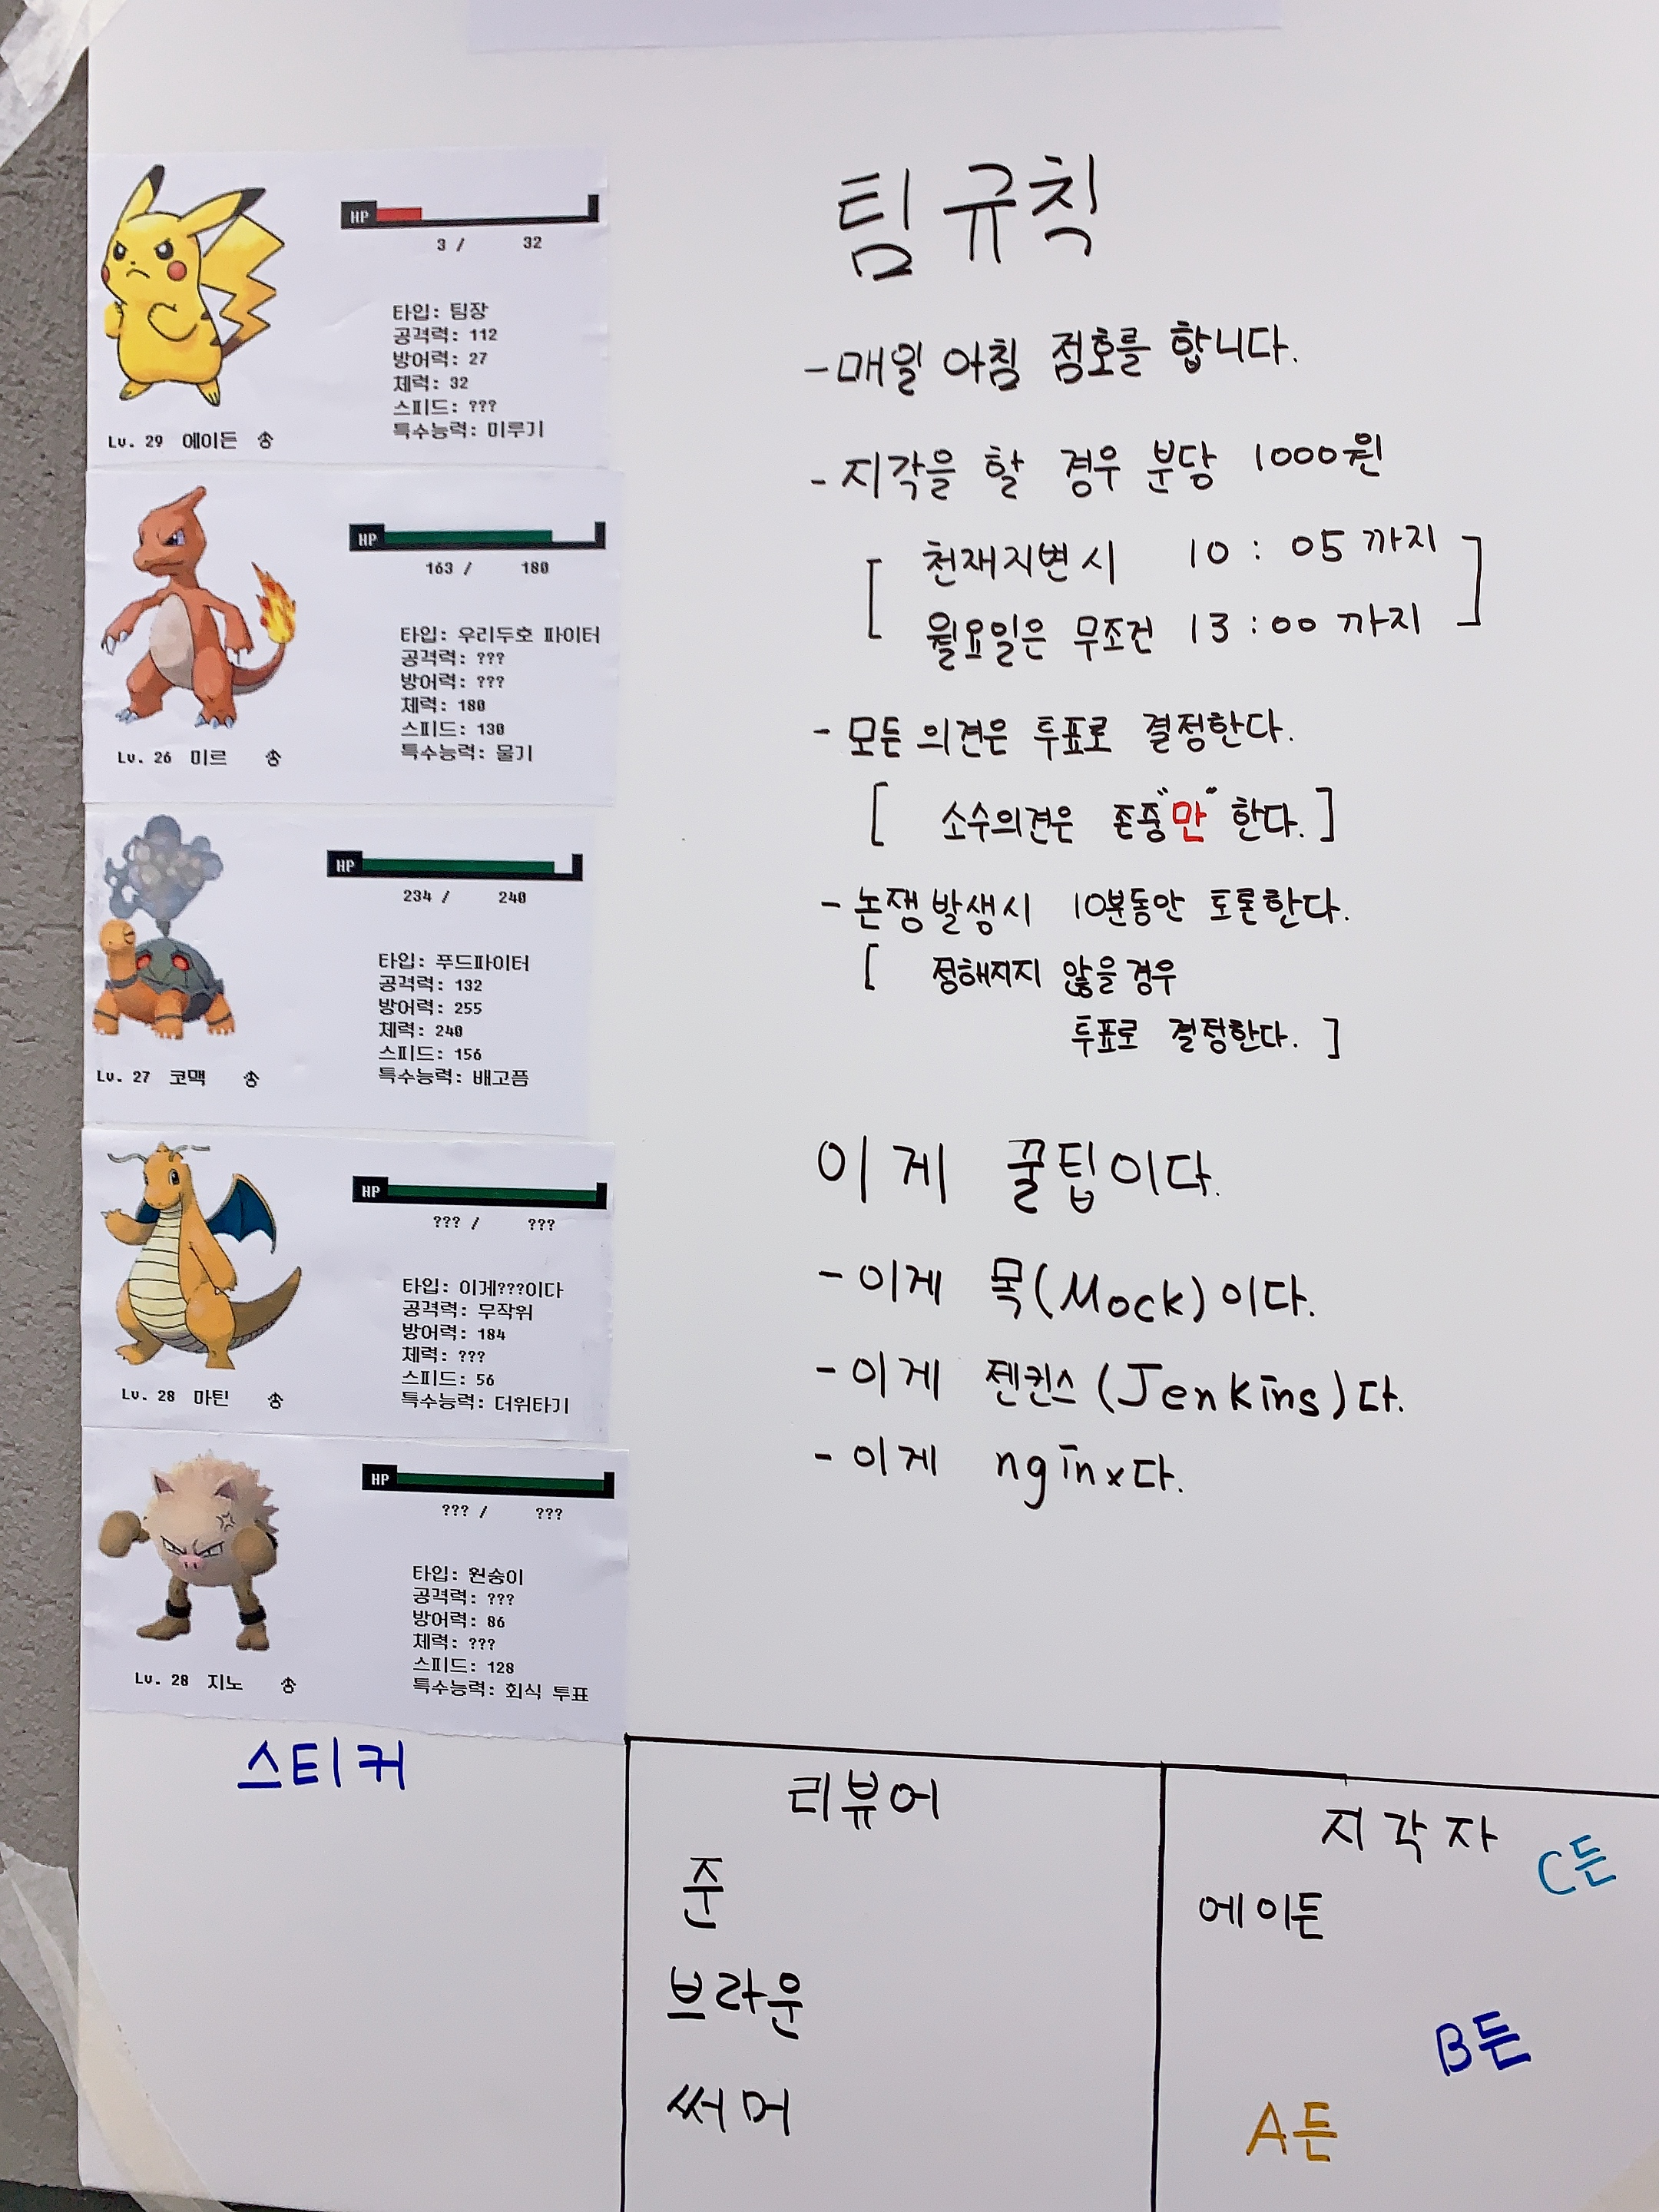 HP
3 / 32
타입: 팀장
공격력: 112
방어력: 27
체력: 32
스피드: ???
특수능력: 미루기
Lv. 29 에이든
HP
163 / 180
타입: 우리두호 파이터
공격력: ???
방어력: ???
체력: 180
스피드: 130
특수능력: 물기
Lv. 26 미르
HP
234 / 240
타입: 푸드파이터
공격력: 132
방어력: 255
체력: 240
스피드: 156
특수능력: 배고픔
Lv. 27 코맥
HP
??? / ???
타입: 이게???이다
공격력: 무작위
방어력: 184
체력: ???
스피드: 56
특수능력: 더위타기
Lv. 28 마틴
HP
??? / ???
타입: 원숭이
공격력: ???
방어력: 86
체력: ???
스피드: 128
특수능력: 회식 투표
Lv. 28 지노
팀 규칙
- 매일 아침 점호를 합니다.
- 지각을 할 경우 분당 1000원
[ 천재지변시 10 : 05 까지
월요일은 무조건 13 : 00 까지 ]
- 모든 의견은 투표로 결정한다.
[ 소수의견은 존중"만" 한다. ]
- 논쟁 발생시 10분동안 토론한다.
[ 정해지지 않을 경우
투표로 결정한다. ]
이게 꿀팁이다.
- 이게 목(Mock)이다.
- 이게 젠킨스(Jenkins)다.
- 이게 nginx다.
스티커
리뷰어
준
브라운
써머
지각자
C든
에이든
B든
A든